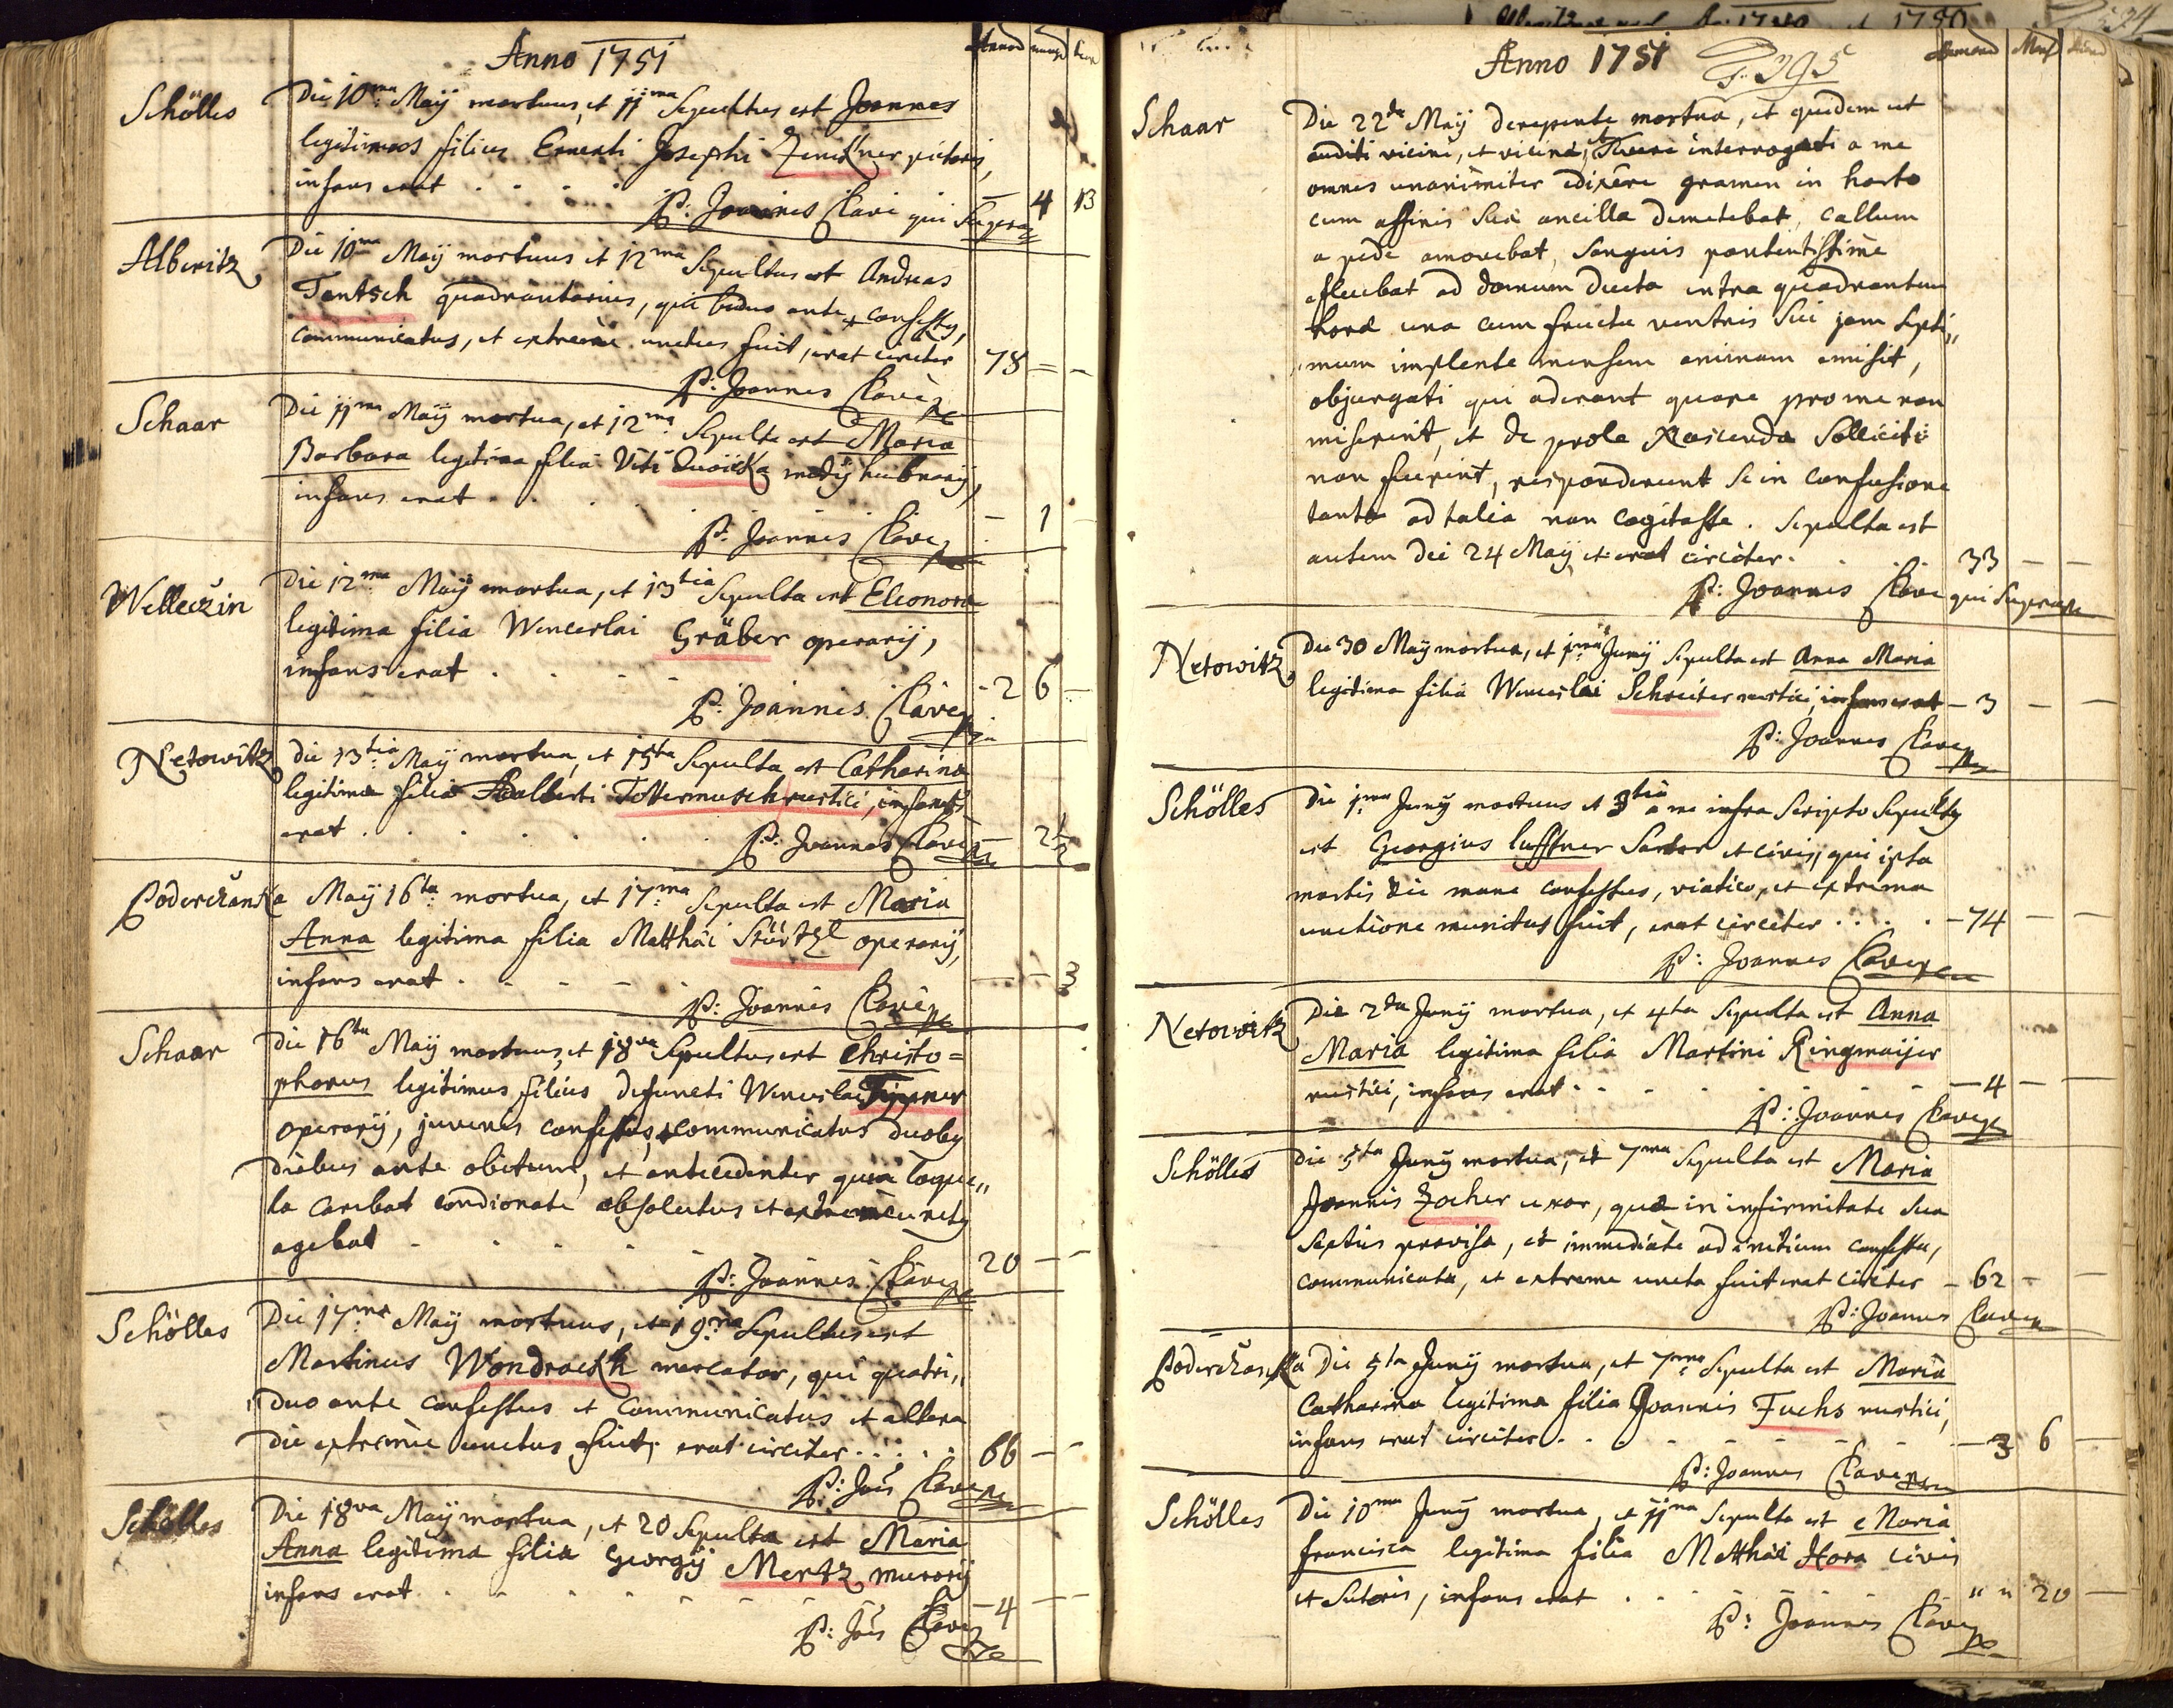 Anno 1751
Schölles
Die 10ma Maij mortuus, et 11ma Sepultus est Joannes
legitimus filius Ernesti Josephi pictoris,
infans erat . . . . 4 13
P: Joannes Clave qui Supra
Alberitz
Die 10ma Maij mortuus et 12ma Sepultus est Andreas
Tentsch quadrantarius, qui biduo ante confessus,
communicatus, et extreme unctus fuit, erat circiter 78
P: Joannes Clave
Schaar
Die 11ma Maij mortua, et 12ma Sepulta est Maria
Barbara legitima filia Viti medij hubnarij,
infans erat . . . 1
P: Joannes Clave
Welleczin
Die 12ma Maij mortua, et 13tia Sepulta est Eleonora
legitima filia Wenceslai Gräber operarij,
infans erat . . . . 2 6
P: Joannes Clave
Netowitz
Die 13tia Maij mortua, et 15ta Sepulta est Catharina
legitima filia Adalberti Tottermusch rustici, infans
erat . . . . . . 2 1/2
P: Joannes Clave
Poderczanka
Maij 16ta mortua, et 17ma Sepulta est Maria
Anna legitima filia Matthäi Störtzl operarij,
infans erat . . . . 3
P: Joannes Clave
Schaar
Die 16ta Maij mortuus, et 18va Sepultus est Christo=
phorus legitimus filius defuncti Wenceslai Tippner
operarij, juvenis confessus, communicatus duobus
diebus ante obitum, et antecedenter quia loque„
la carebat condionate absolutus et extreme unctus
agebat . . . . . 20
P: Joannes Clave
Schölles
Die 17ma Maij mortuus, et 19na Sepultus est
Martinus Wondrackh mercator, qui quatri„
duo ante confessus et communicatus et altera
die extreme unctus fuit, erat circiter . . . . 66
P: Joes Clave
Schölles
Die 18va Maij mortua, et 20 Sepulta est Maria
Anna legitima filia Georgij Mertz murarij
infans erat . . . . . . 4
P: Joes Clave
Anno 1751
395
Schaar
Die 22da Maij derepente mortua, et quidem ut
auditi vicini, et vicinæ, interrogati a me
omnes unanimiter edixere gramen in horto
cum affinis sua ancilla demetebat, callum
a pede amovebat, Sanguis
effluebat ad domum ducta intra quadrantem
horæ una cum fructu ventris Sui jam Septi„
mum implente mensem animam emisit,
objurgati qui aderant quare pro me non
miserint, et de prole Nascenda Solliciti
non fuerint, responderunt Se in confusione
tanta ad talia non cogitasse. Sepulta est
autem die 24 Maij et erat circiter . . . 33
P: Joannes Clave qui Supra
Netowitz
Die 30 Maij mortua, et 1ma Junij Sepulta est Anna Maria
legitima filia Wenceslai Schreiter rustici, infans erat 3
P: Joannes Clave
Schölles
Die 1ma Junij mortuus et 3tia a me infra Scripto Sepultus
est Georgius Lufftner Sartor et civis, qui ipsa
mortis die mane confessus, viatico, et extrema
unctione munitus fuit, erat circiter . . . . . 74
P: Joannes Clave
Netowitz
Die 2da Junij mortua, et 4ta Sepulta est Anna
Maria legitima filia Martini Ringmaijer
rustici, infans erat . . . . . 4
P: Joannes Clave
Schölles
Die 5ta Junij mortua, et 7ma Sepulta est Maria
Joannis Zocher uxor, quæ in infirmitate Sua
Sæpius provisa, et immediate ad confessa,
communicata, et extreme uncta fuit erat circiter 62
P: Joannes Clave
Poderczanka
Die 5ta Junij mortua, et 7ma Sepulta est Maria
Catharina legitima filia Joannis Fuchs rustici,
infans erat circiter . . . . . 3 6
P: Joannes Clave
Schölles
Die 10ma Junij mortua, et 11ma Sepulta est Maria
Francisca legitima filia Matthäi Hora civis
et Sutoris, infans erat . . . . 20
P: Joannes Clave